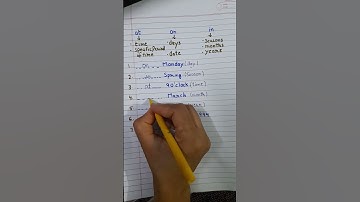 at on in
• time • Days • Seasons
• Specific/fixed • months
time • date • years
1. on Monday (day)
2. in Spring (Season)
3. at 9 o'clock (time)
4. March (month)
5.
6.
7.